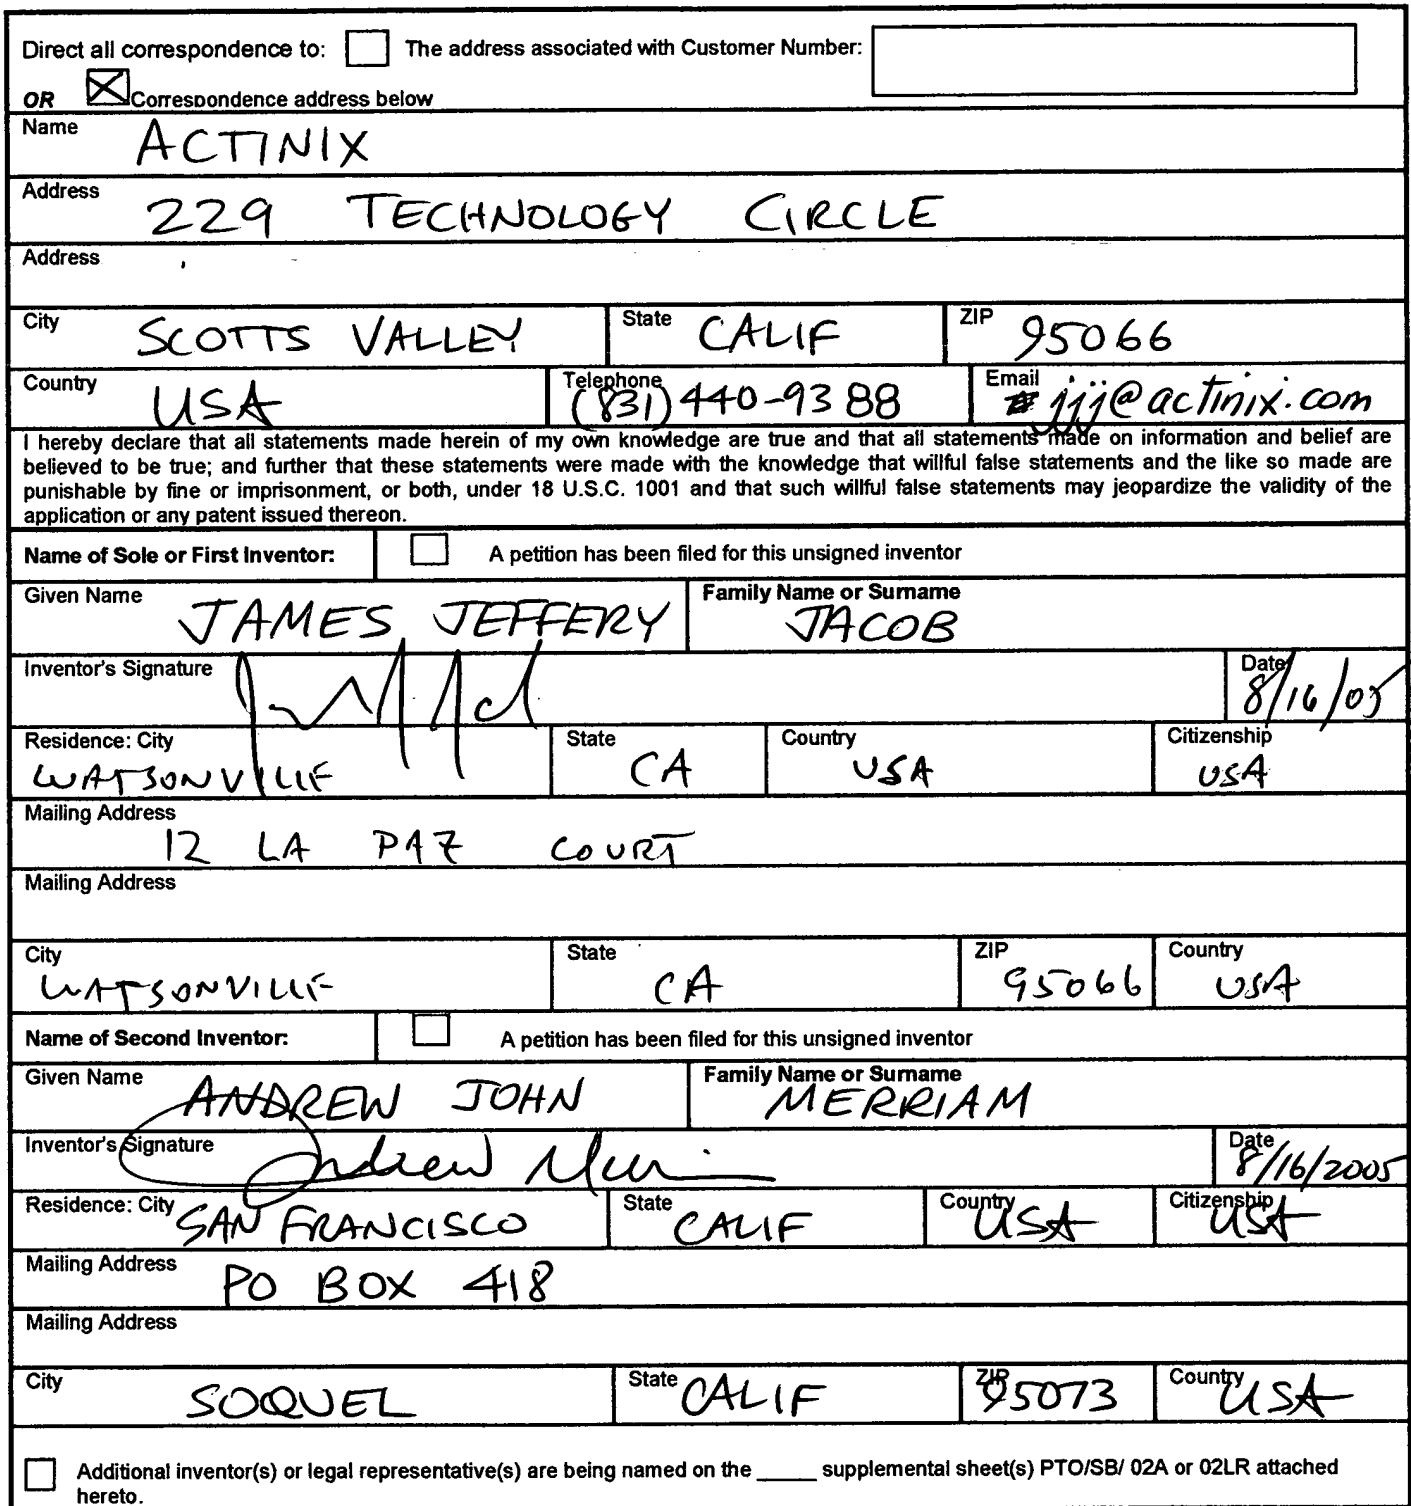 Direct all correspondence to: The address associated with Customer Number:
OR Correspondence address below
Name ACTINIX
Address 229 TECHNOLOGY CIRCLE
Address
City SCOTTS VALLEY State CALIF ZIP 95066
Country USA Telephone (831) 440-9388 Email jjj@actinix.com
I hereby declare that all statements made herein of my own knowledge are true and that all statements made on information and belief are
believed to be true; and further that these statements were made with the knowledge that willful false statements and the like so made are
punishable by fine or imprisonment, or both, under 18 U.S.C. 1001 and that such willful false statements may jeopardize the validity of the
application or any patent issued thereon.
Name of Sole or First Inventor: A petition has been filed for this unsigned inventor
Given Name JAMES JEFFERY Family Name or Surname JACOB
Inventor's Signature Date 8/16/05
Residence: City WATSONVILLE State CA Country USA Citizenship USA
Mailing Address 12 LA PAZ COURT
Mailing Address
City WATSONVILLE State CA ZIP 95066 Country USA
Name of Second Inventor: A petition has been filed for this unsigned inventor
Given Name ANDREW JOHN Family Name or Surname MERRIAM
Inventor's Signature Andrew Date 8/16/2005
Residence: City SAN FRANCISCO State CALIF Country USA Citizenship USA
Mailing Address PO BOX 418
Mailing Address
City SOQUEL State CALIF ZIP 95073 Country USA
Additional inventor(s) or legal representative(s) are being named on the _____ supplemental sheet(s) PTO/SB/ 02A or 02LR attached
hereto.